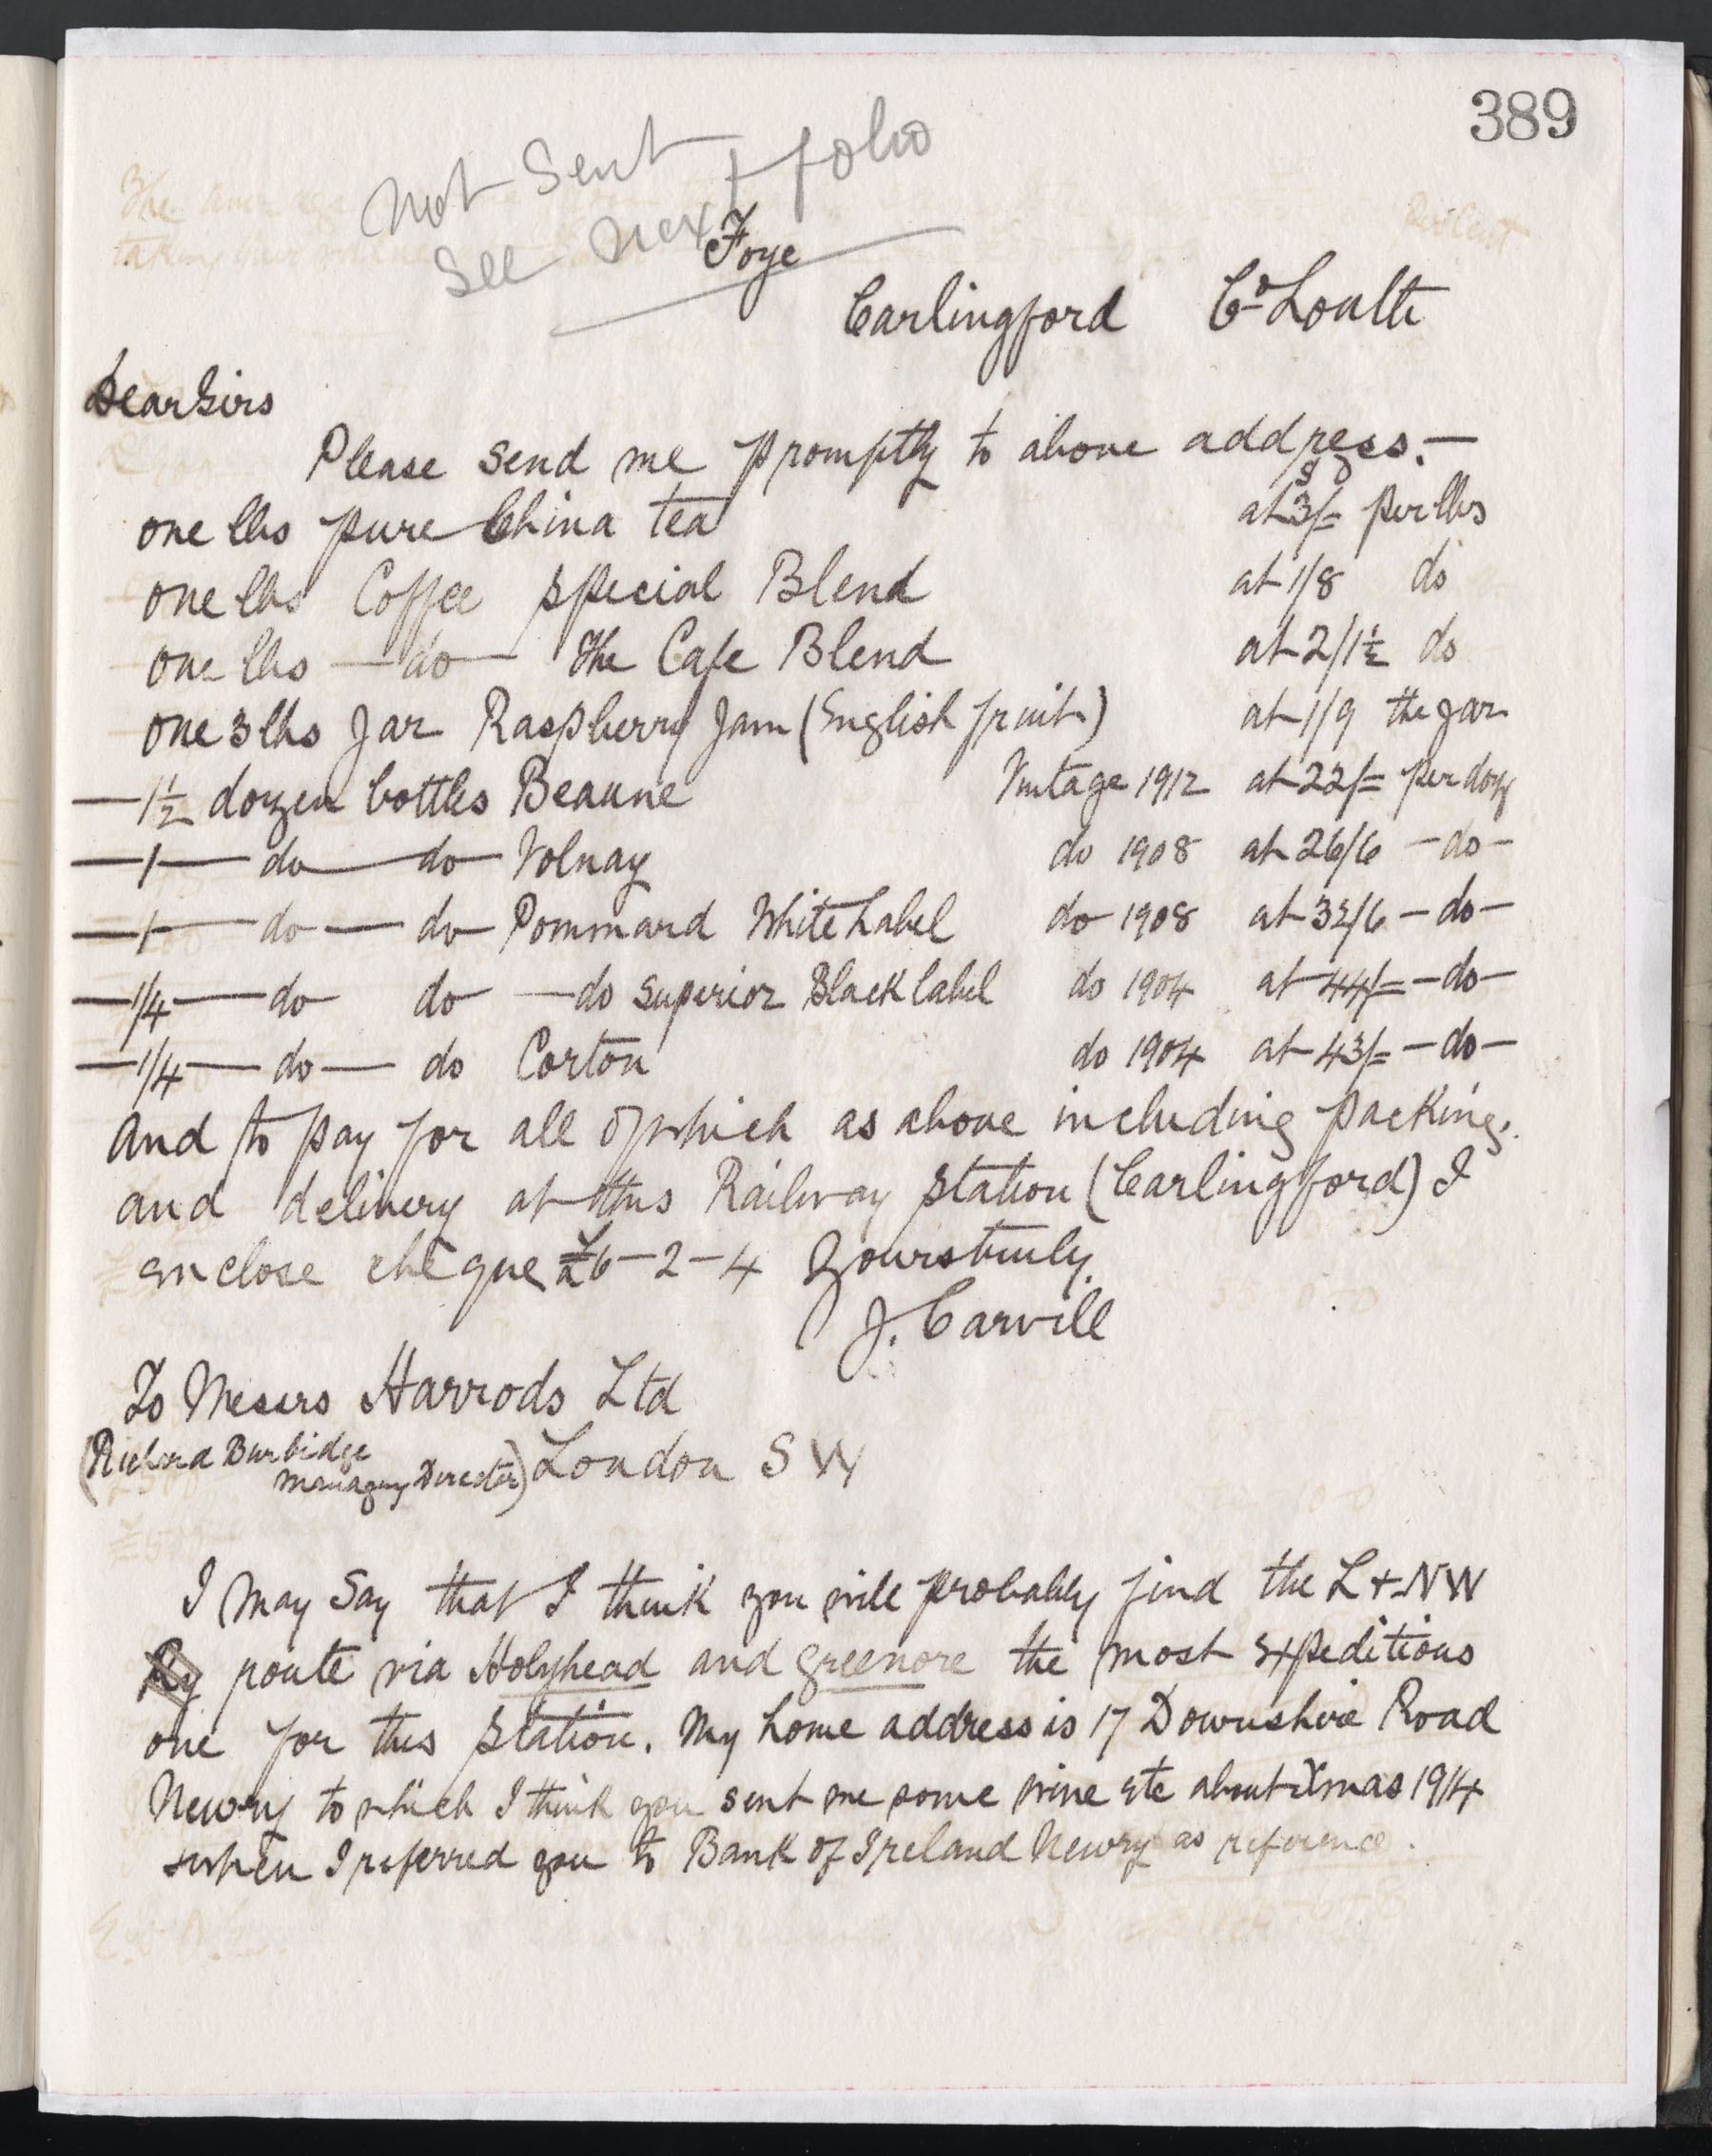 389
Not Sent
See Next folio
Foye
Carlingford Co Louth
Dear Sirs
Please send me promptly to above address.—
S D
one lbs pure China tea at 3/= per lbs
one lbs Coffee special Blend at 1/8 do
one lbs — do — The Cafe Blend at 2/1½ do
one 3 lbs Jar Raspberry Jam (English fruit) at 1/9 the Jar
— 1½ dozen bottles Beaune Vintage 1912 at 22/= per doz
— 1 — do — do — Volnay do 1908 at 26/6 — do —
— 1 — do — do Pommard White Label do 1908 at 32/6 — do —
— 1/4 — do do — do superior Black label do 1904 at 44/= — do —
— 1/4 — do — do Corton do 1904 at 43/= — do —
and to pay for all of which as above including packing.
and delivery at this Railway Station (Carlingford) I
enclose cheque £6-2-4 Yours truly
J. Carvill
To Messrs Harrods Ltd
(Richard Burbidge
Managing Director) London SW
I may say that I think you will probably find the L & NW
Ry route via Holyhead and Greenore the most expeditious
one for this station. My home address is 17 Downshire Road
Newry to which I think you sent me some wine etc about Xmas 1914
when I referred you to Bank of Ireland Newry as reference.